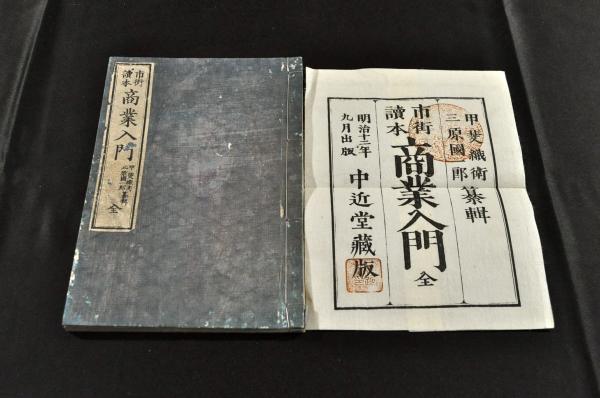 市街
讀本
商業入門
全
甲斐織衛
三原國一郎
纂輯
市街
讀本
商業入門
全
明治十二年
九月出版
中近堂藏版